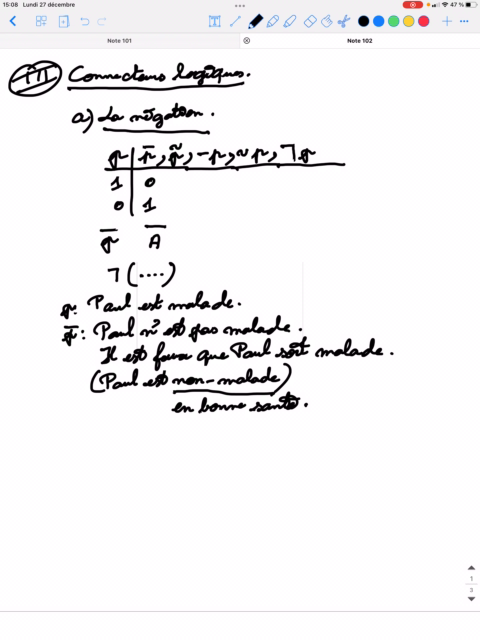 15:08 Lundi 27 décembre
47 %
Note 101
Note 102
III Connecteurs logiques.
a) La négation.
p | p̅, p̃, -p, ~p, ¬p
1 | 0
0 | 1
p̅ A̅
¬(....)
p: Paul est malade.
p̅: Paul n'est pas malade.
Il est faux que Paul soit malade.
(Paul est non-malade)
en bonne santé.
1
3